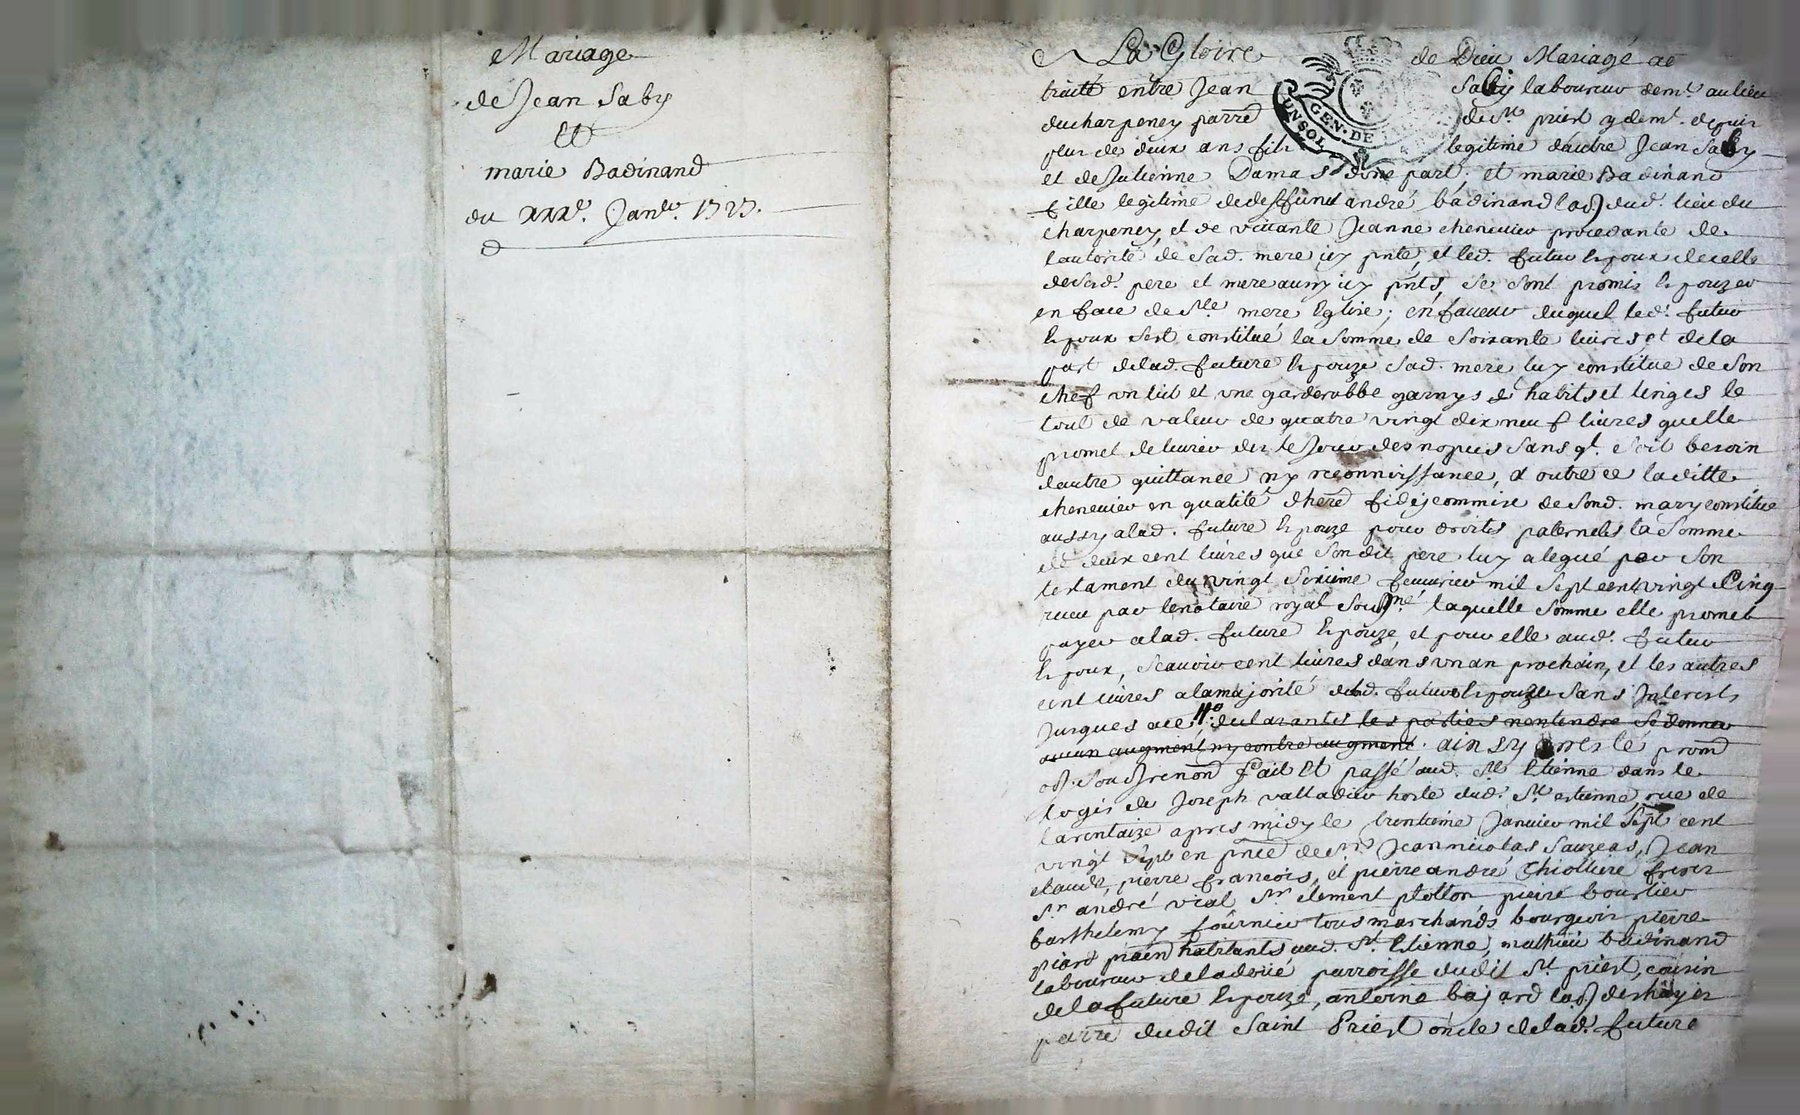 Mariage
de Jean Saby
Et
marie Badinand
du xxxe. Janer. 1727.
A La Gloire de Dieu Mariage ae
traité entre Jean Saby laboureur demt. au lieu
du charpeney parre de St priest y demt. depuis
plus de deux ans fils legitime dautre Jean Saby
et de Julienne Damas d'une part; et marie Badinand
fille legitime de deffunt andré badinand lad dud. lieu du
charpeney, et de vivante Jeanne chenevier procedante de
lautorité de sad. mere icy pnte, et led. futur Epoux de celle
de sesd. pere et mere aussy icy pnts, se sont promis Epouzer
en face de Ste mere Eglise; en faveur duquel led. futur
Epoux s'est constitué la somme de soixante livres et de la
part de lad. future Epouze sad. mere luy constitue de son
chef un lit et une garderobbe garnys de habits et linges le
tout de valeur de quatre vingt dix neuf livres quelle
promet de livrer des le Jour des nopces sans qt. soit besoin
dautre quittance ny reconnoissance, et outre ce laditte
chenevier en qualité d'here fideycommise de sond. mary constitue
aussy a lad. future Epouze pour droits paternels la somme
de deux cent livres que son dit pere luy a legué par son
testament du vingt sixieme fevurier mil sept cent vingt Cinq
receu par le notaire royal sousne laquelle somme elle promet
payer a lad. future Epouze, et pour elle aud. futur
Epoux, scavoir cent livres dans un an prochain, et les autres
cent livres a la majorité de lad. future Epouze sans Interests
Jusques a ce, declarantes les parties n'entendre se donner
aucun augment ny contre augment. ainsy arresté prom
obl. soub. renon fait Et passé aud. St Etienne dans le
logis de Joseph valladier hoste dud. St estienne, rue de
larentaize apres midy le trentieme Janvier mil sept cent
vingt sept en pnce de Srs Jean nicolas Sauzeas, Jean
claude, pierre francois, et pierre andré Thiolliere freres
Sr andré vial Sr clement ptotton pierre bourlier
barthelemy fournier tous marchands bourgeois pierre
piard habitants aud. St. Etienne, mathieu badinand
laboureur de la parroisse dudit St priest, cousin
de la future Epouze, antoine bajard lab des hayes
parre dudit Saint Priest oncle de lad. future
GEN. DE
UN SOL